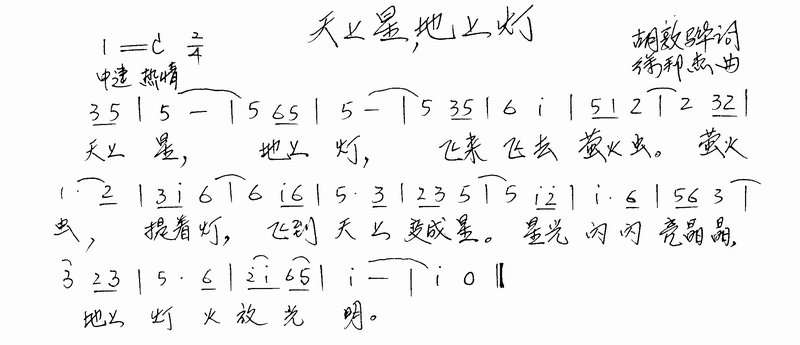 天上星,地上灯
1=C 2/4
胡敦骅词
中速 热情
徐邦杰曲
35 | 5 — | 5 65 | 5 — | 5 35 | 6 i | 51 2 | 2 32 |
天上 星, 地上 灯, 飞来 飞去 萤火虫。 萤火
1· 2 | 3i 6 | 6 i6 | 5· 3 | 23 5 | 5 i2 | i· 6 | 56 3 |
虫, 提着灯, 飞到 天上 变成星。 星光 闪闪 亮晶晶,
3 23 | 5· 6 | 2i 65 | i — | i 0 ‖
地上 灯 火 放 光 明。